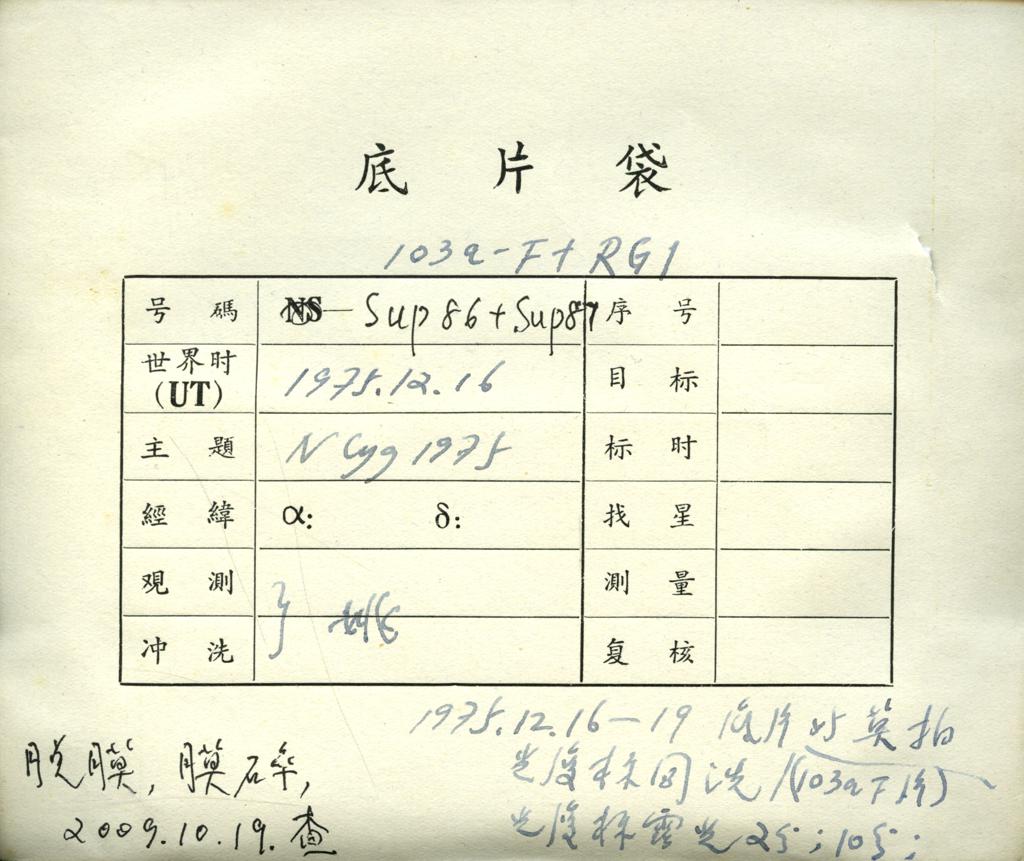 底片袋
103a-F+RG1
号碼 NS—Sup86+Sup87 序号
世界时(UT) 1975.12.16 目标
主題 N Cyg 1975 标时
經緯 α: δ: 找星
观測 } 姚 測量
冲洗 复核
1975.12.16—19 底片 拍
脱膜，膜碎， 光度标同洗 (103aF片)
2009.10.19.查 光度标露光 25; 105;